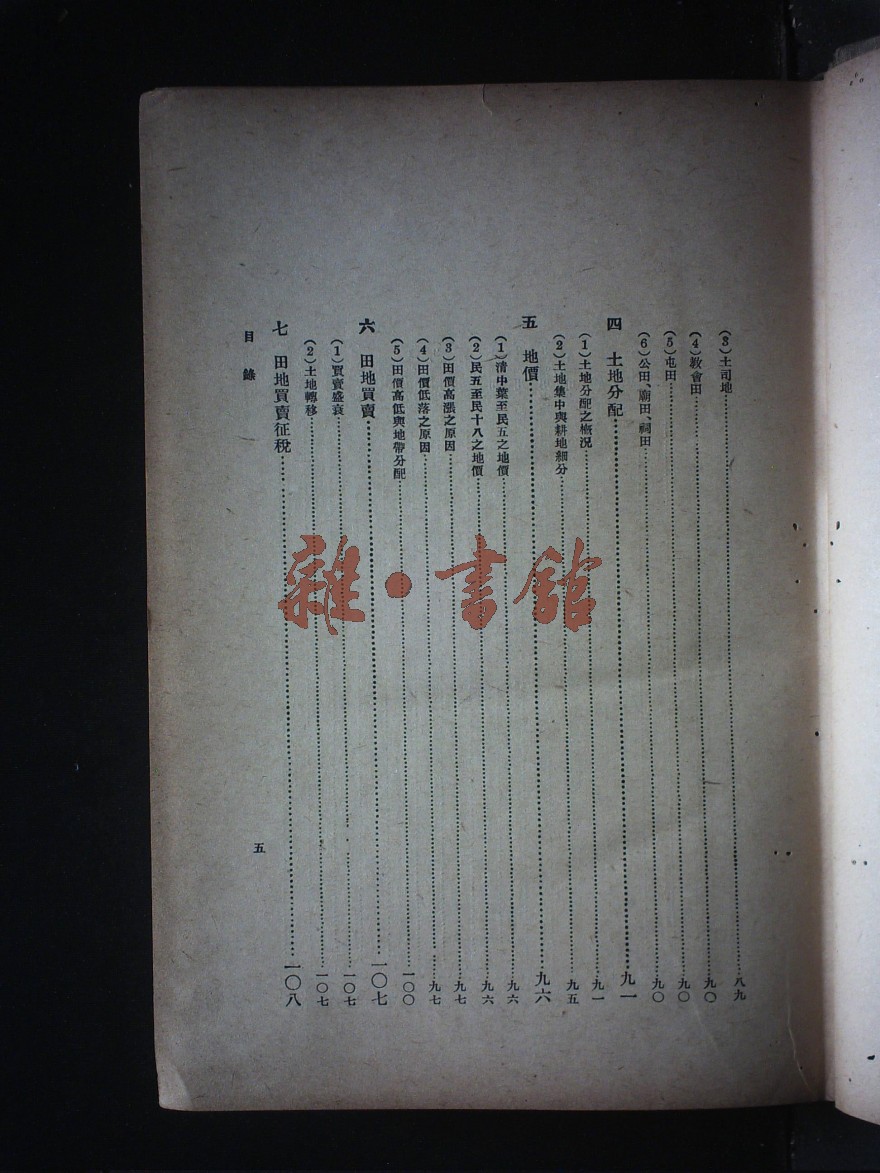 （3）土司地……八九
（4）教會田……九〇
（5）屯田……九〇
（6）公田、廟田、祠田……九〇
四　土地分配……九一
（1）土地分配之概況……九一
（2）土地集中與耕地細分……九五
五　地價……九六
（1）清中葉至民五之地價……九六
（2）民五至民十八之地價……九六
（3）田價高漲之原因……九七
（4）田價低落之原因……九七
（5）田價高低與地帶分配……一〇〇
六　田地買賣……一〇七
（1）買賣盛衰……一〇七
（2）土地轉移……一〇七
七　田地買賣征稅……一〇八
目錄
五
雜·書館